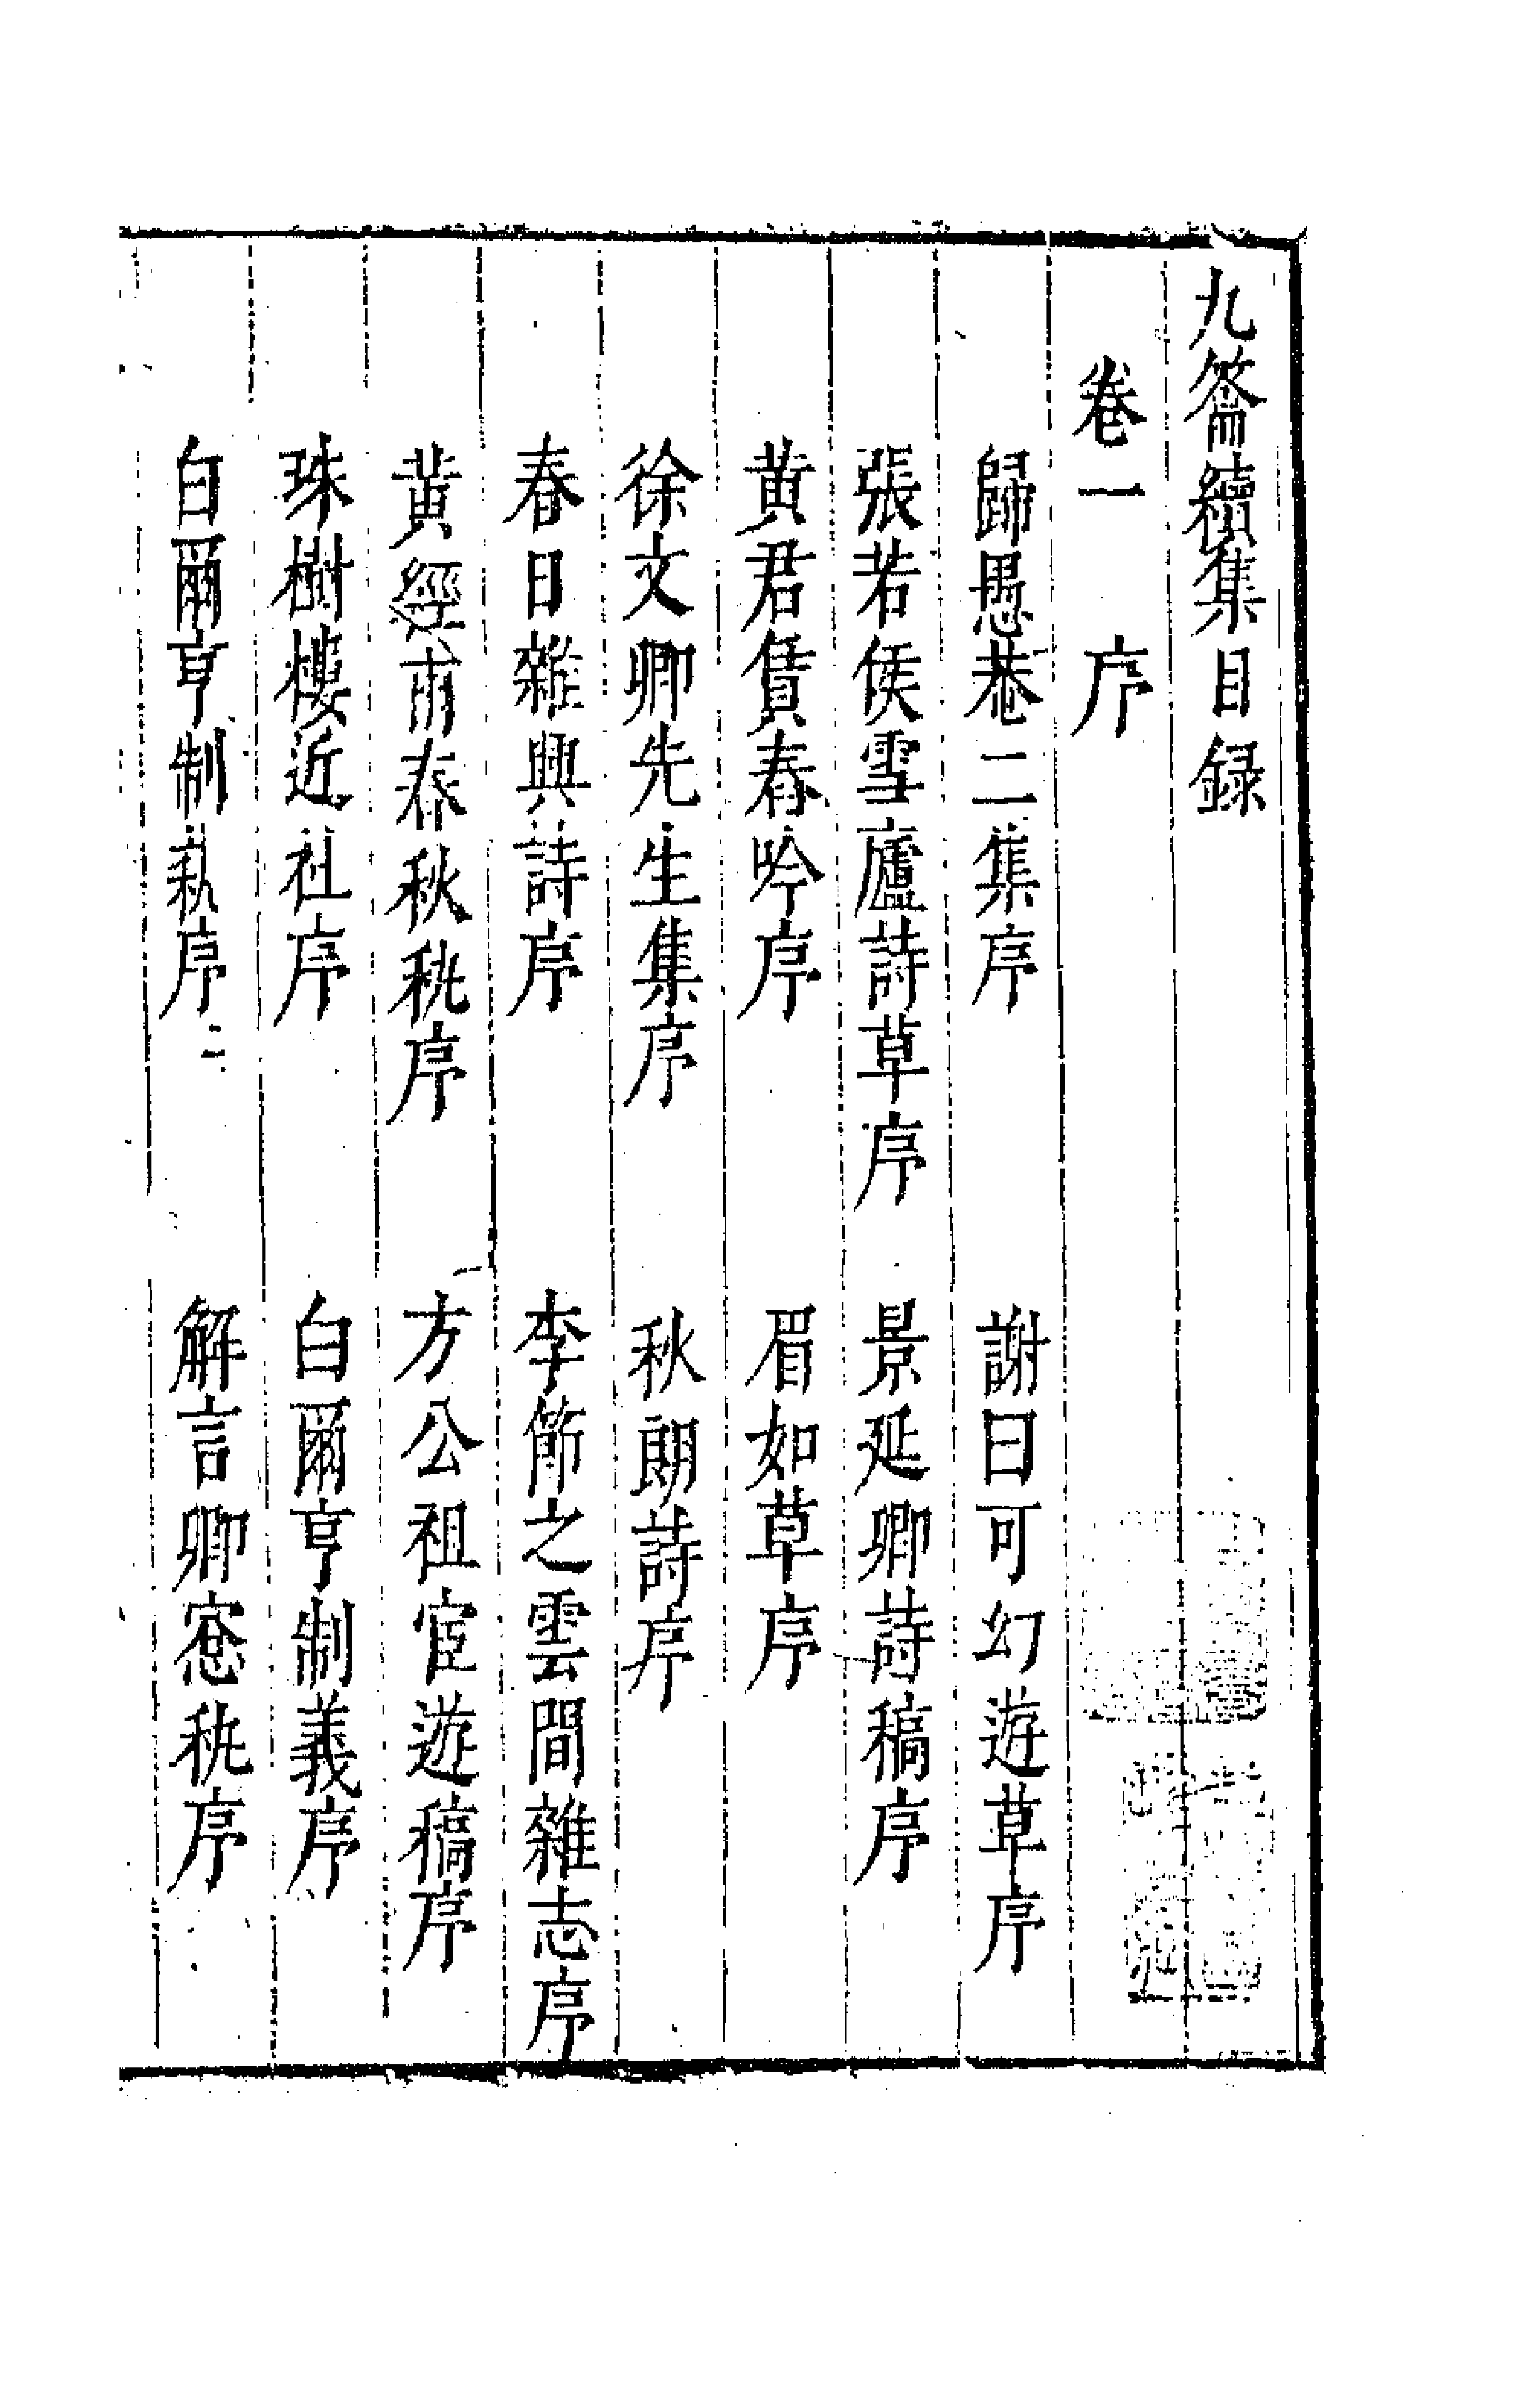 九籥續集目録
卷一　序
歸愚菴二集序　謝曰可幻遊草序
張若侯雪廬詩草序　景延卿詩稿序
黄君賃舂吟序　眉如草序
徐文卿先生集序　秋朗詩序
春日雜興詩序　李節之雲間雜志序
黄經甫春秋秇序　方公祖宦遊稿序
珠樹樓近社序　白爾亨制義序
白爾亨制義序二　解言卿窓秇序